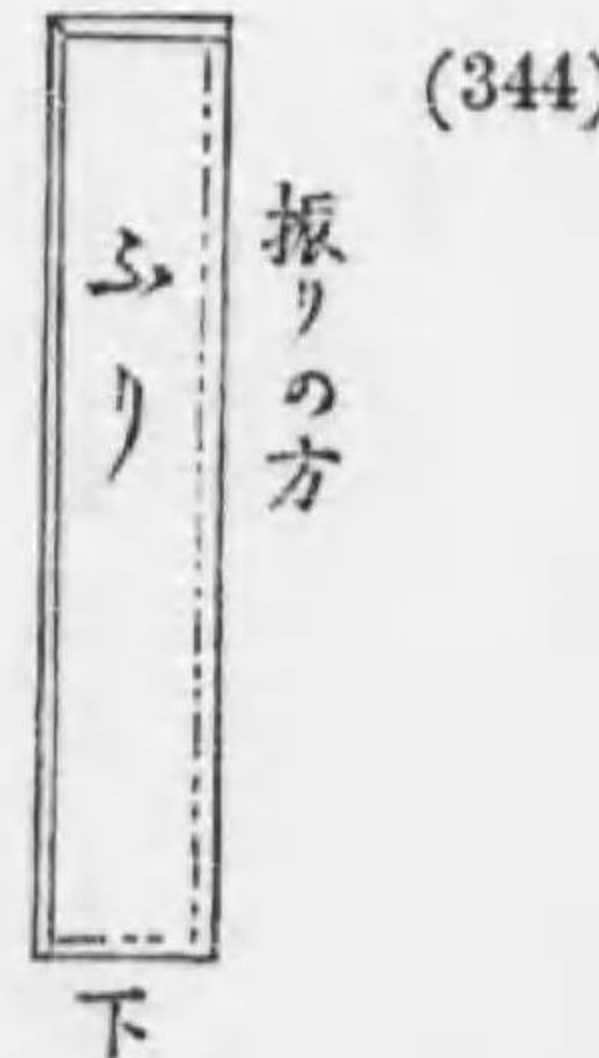 (344)
振りの方
ふり
下